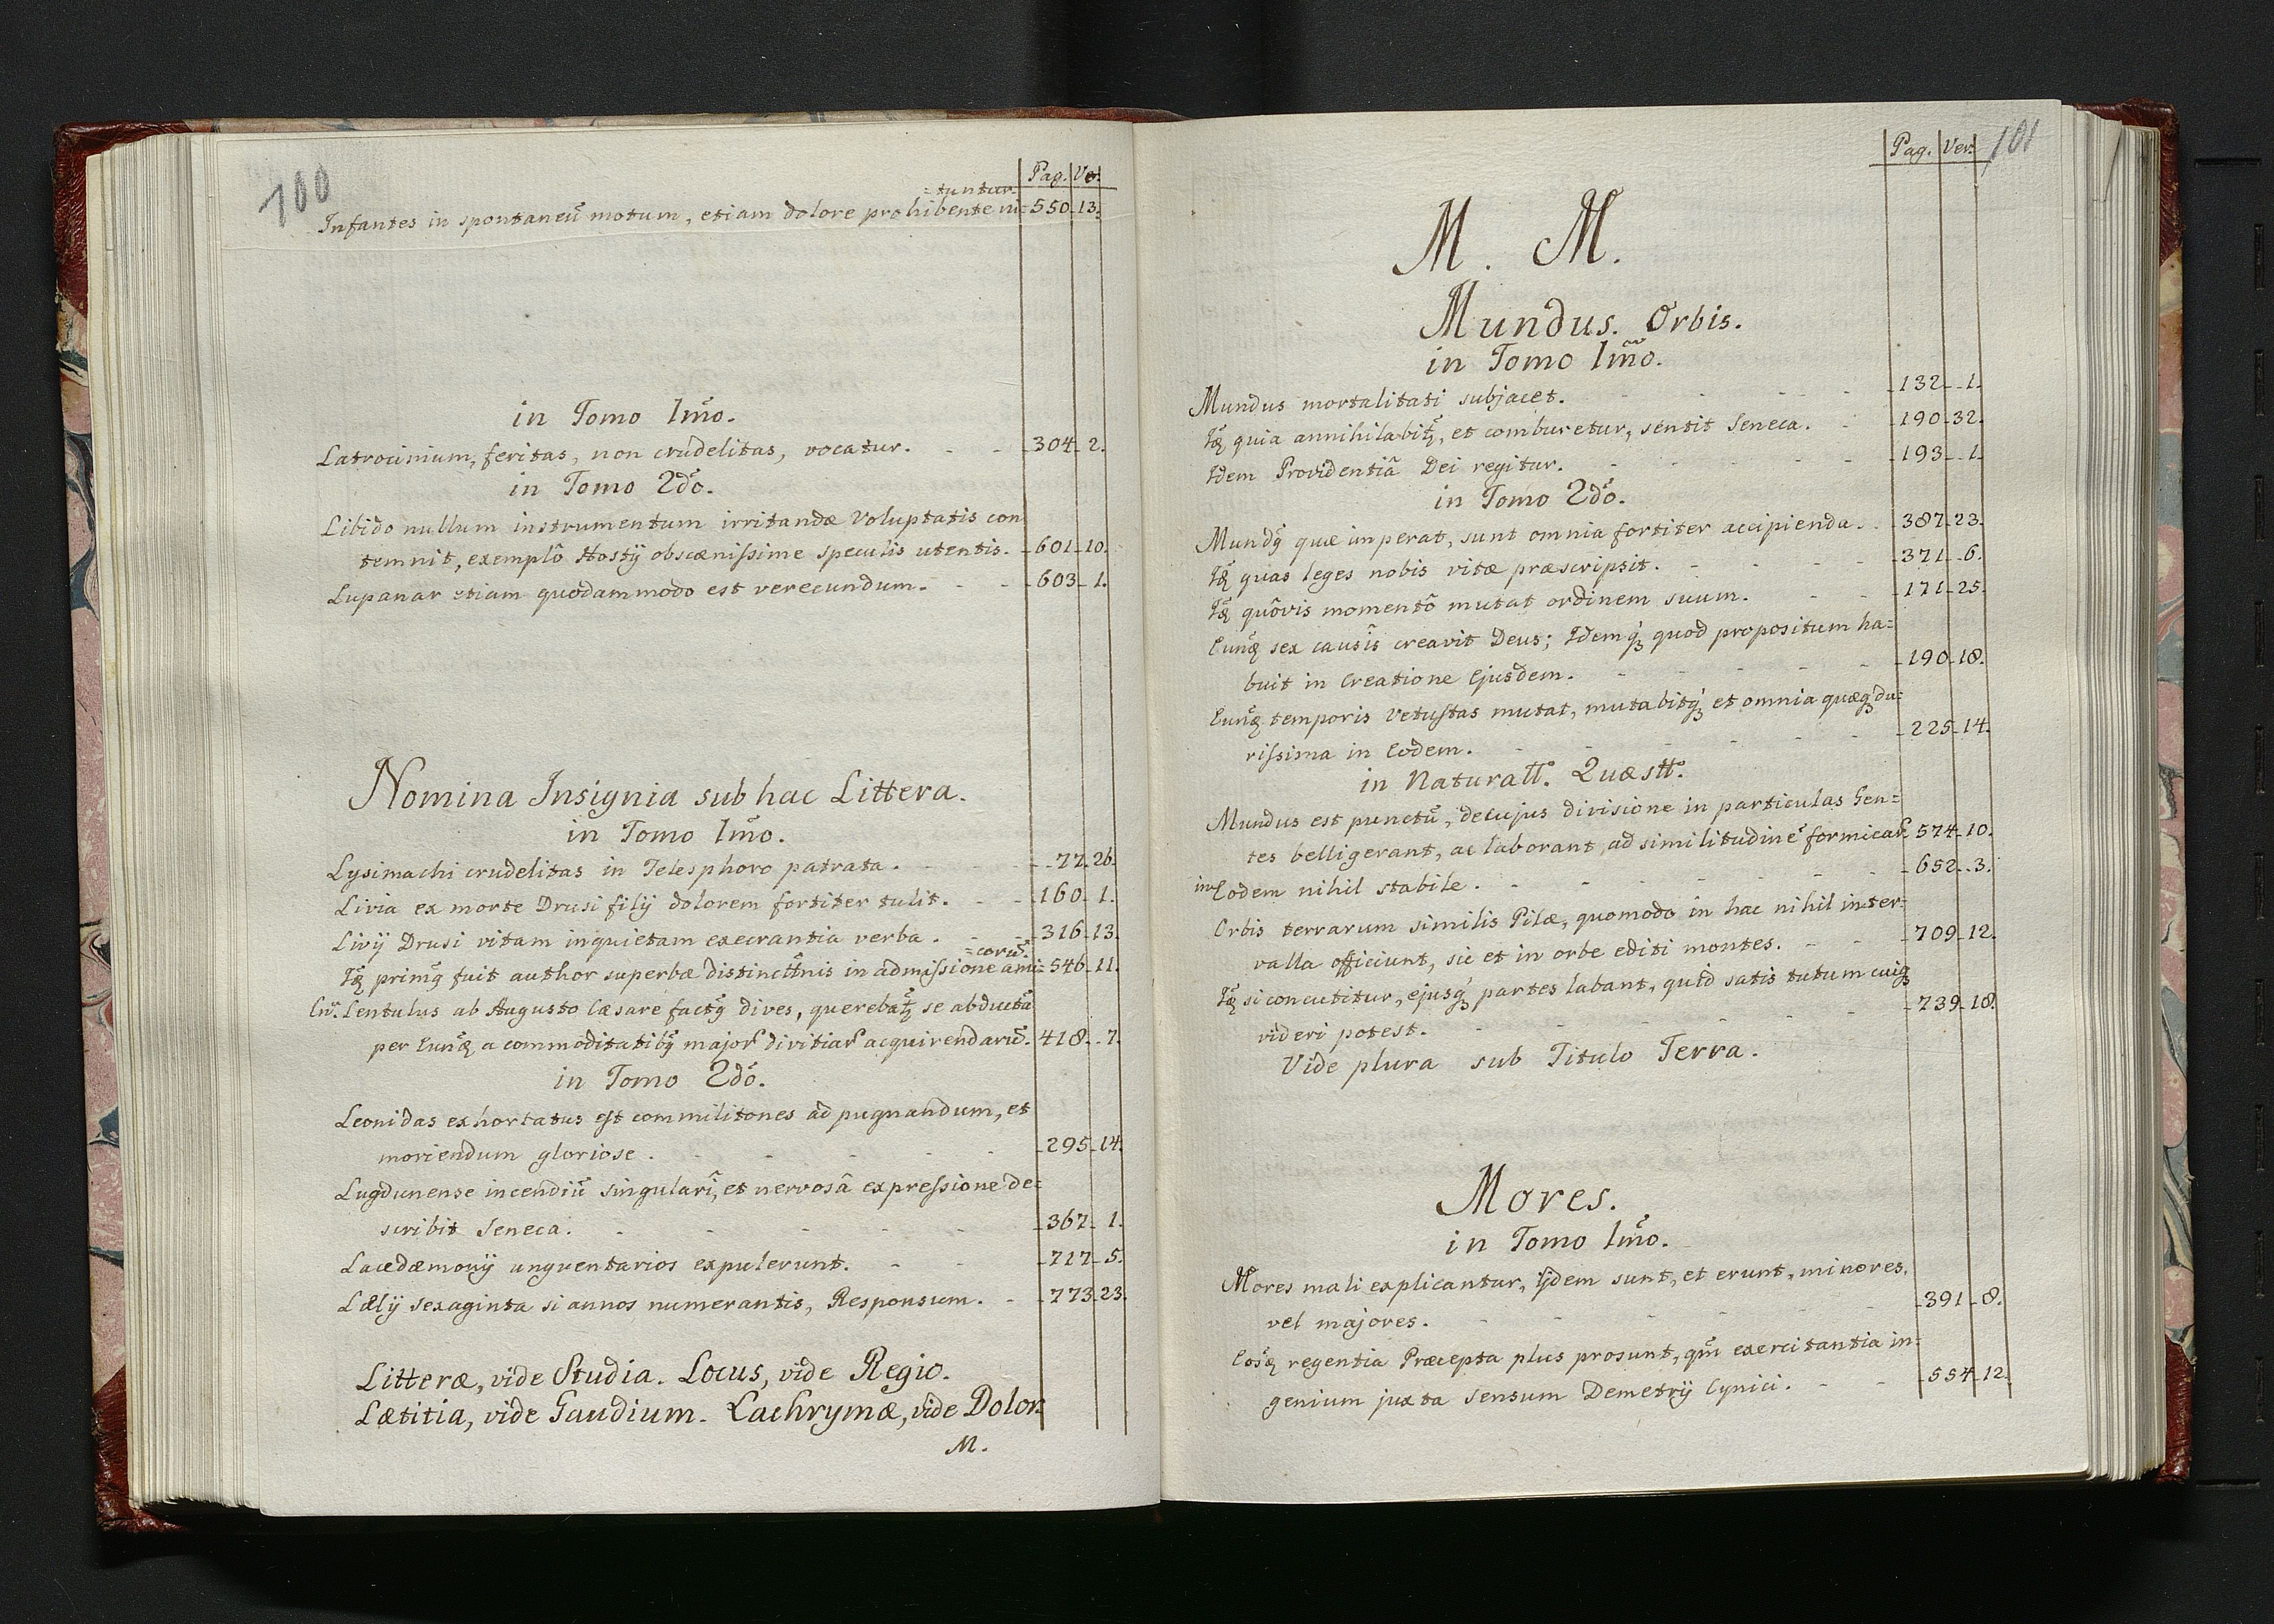 100
Pag. Ve.
=tuntur.
Infantes in spontaneũ motum, etiam dolore prohibente ni= 550. 13.
in Tomo 1mõ.
Latrocinium, feritas, non crudelitas, vocatur. - - 304. 2.
in Tomo 2dõ.
Libido nullum instrumentum irritandæ voluptatis con
temnit, exemplô Hostÿ obscænissime speculis utentis. 601. 10.
Lupanar etiam quodammodo est verecundum. - - 603. 1.
Nomina Insignia sub hac Littera.
in Tomo 1mõ.
Lysimachi crudelitas in Telesphoro patrata. - - 77. 26.
Livia ex morte Drusi filÿ dolorem fortiter tulit. - - 160. 1.
Livÿ Drusi vitam inquietam execrantia verba. - - 316. 13.
=corũ.
primꝰ fuit author superbæ distinctt̃nis in admissione ami= 546. 11.
Cn̄. Lentulus ab Augusto Cæsare factꝰ dives, querebat se abductũ
per a commoditatibꝰ major divitiar acquirendarũ. 418. 7.
in Tomo 2dõ.
Leonidas exhortatus est commilitones ad pugnandum, et
moriendum gloriose. - - - - 295. 14.
Lugdunense incendiũ singularî, et nervosâ expressione de=
scribit Seneca. - - - - 367. 1.
Lacedæmonÿ unguentarios expulerunt. - - 717. 5.
Lælÿ sexaginta si annos numerantis, Responsum. - 773. 23.
Litteræ, vide Studia. Locus, vide Regio.
Lætitia, vide Gaudium. Lachrymæ, vide Dolor.
M.
101
Pag. Ver.
M. M.
Mundus. Orbis.
in Tomo 1mõ.
Mundus mortalitati subjacet. - - - - 132. 1.
quia annihilabit, et comburetur, sentit Seneca. - 190. 32.
Idem Providentiâ Dei regitur. - - - - 193. 1.
in Tomo 2dõ.
Mundꝰ quæ imperat, sunt omnia fortiter accipienda. - 387. 23.
quas leges nobis vitæ præscripsit. - - - - 371. 6.
quôvis momentô mutat ordinem suum. - - 171. 25.
sex causis creavit Deus; Idemq́ quod propositum ha=
buit in Creatione Ejusdem. - - - - 190. 18.
temporis vetustas mutat, mutabitq́ et omnia quæq́ du=
rissima in Eodem. - - - - - 225. 14.
in Naturall. Quæstt.
Mundus est punctũ, de cujus divisione in particulas Gen=
tes belligerant, ac laborant, ad similitudinẽ formicar. 574. 10.
in Eodem nihil stabile. - - - - - 652. 3.
Orbis terrarum similis Pilæ, quomodo in hac nihil inter=
valla officiunt, sic et in orbe editi montes. - - 709. 12.
si concutitur, ejusq́ partes labant, quid satis tutum cuiq́
videri potest. - - - - - 739. 18.
Vide plura sub Titulo Terra.
Mores.
in Tomo 1mõ.
Mores mali explicantur, ijdem sunt, et erunt, minores,
vel majores. - - - - - 391. 8.
regentia Præcepta plus prosunt, qm̃ exercitantia in=
genium juxta sensum Demetrÿ Cynici. - - 554. 12.